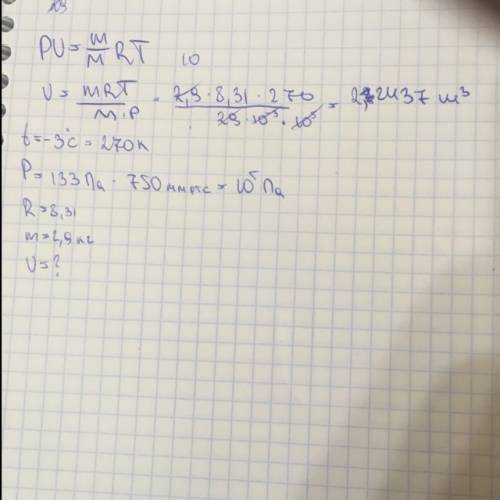 PV = m/M RT
10
V = mRT/M·P = 2,9 · 8,31 · 270 / 29 · 10⁻³ · 10⁵ = 2,2437 м³
t = -3°C = 270К
P = 133 Па · 750 мм рт с = 10⁵ Па
R = 8,31
m = 2,9 кг
V = ?